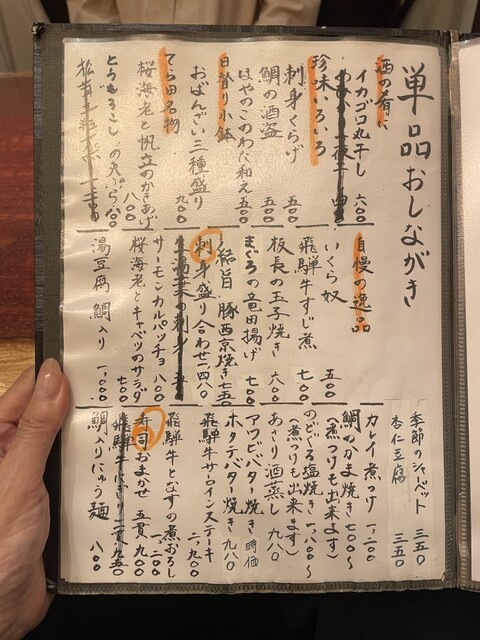 単品おしながき
酒の肴に
イカゴロ丸干し 六〇〇
珍味いろいろ
刺身くらげ 五〇〇
鯛の酒盗 五〇〇
ほやこのわた和え 五〇〇
日替り小鉢
おばんざい三種盛り 九〇〇
てら田名物
桜海老と帆立のかきあげ 八〇〇
とうもろこしの天ぷら
自慢の逸品
いくら奴 五〇〇
飛騨牛すじ煮 七〇〇
板長の玉子焼き 六〇〇
まぐろの竜田揚げ 七〇〇
結旨豚西京焼き 七五〇
刺身盛り合わせ 二四八〇
サーモンカルパッチョ 八〇〇
桜海老とキャベツのサラダ 七〇〇
湯豆腐 鯛入り 一,〇〇〇
季節のシャーベット 三五〇
杏仁豆腐 三五〇
カレイ煮つけ 一,二〇〇
鯛のかま焼き 七〇〇〜
(煮つけも出来ます)
のどぐろ塩焼き 一,八〇〇〜
(煮つけも出来ます)
あさり酒蒸し 九八〇
アワビバター焼き 時価
ホタテバター焼き 九八〇
飛騨牛サーロインステーキ 二,九〇〇
飛騨牛となすの煮おろし 一,二〇〇
寿司おまかせ 五貫 九〇〇
鯛入りにゅう麺 八〇〇